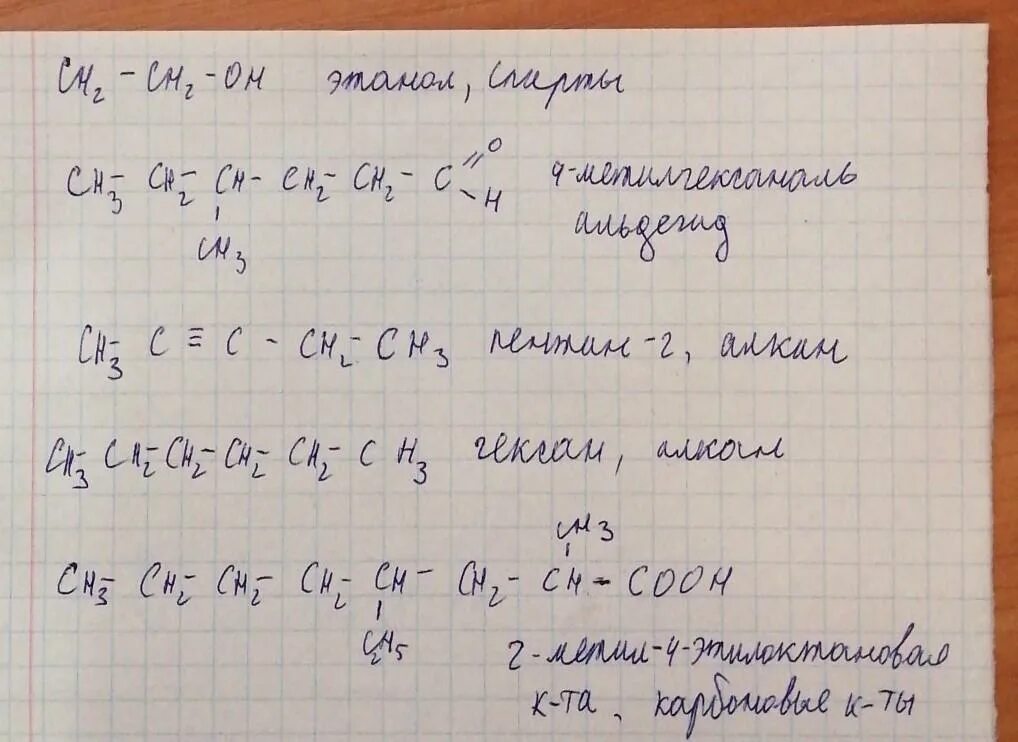 CH₂ - CH₂ - OH этанол, спирты
O
CH₃ - CH₂ - CH - CH₂ - CH₂ - C 4-метилгексаналь
H
CH₃ альдегид
CH₃ - C ≡ C - CH₂ - CH₃ пентин-2, алкин
CH₃ - CH₂ - CH₂ - CH₂ - CH₂ - CH₃ гексан, алкан
CH₃
CH₃ - CH₂ - CH₂ - CH₂ - CH - CH₂ - CH - COOH
C₂H₅ 2-метил-4-этилоктановая
к-та, карбоновые к-ты